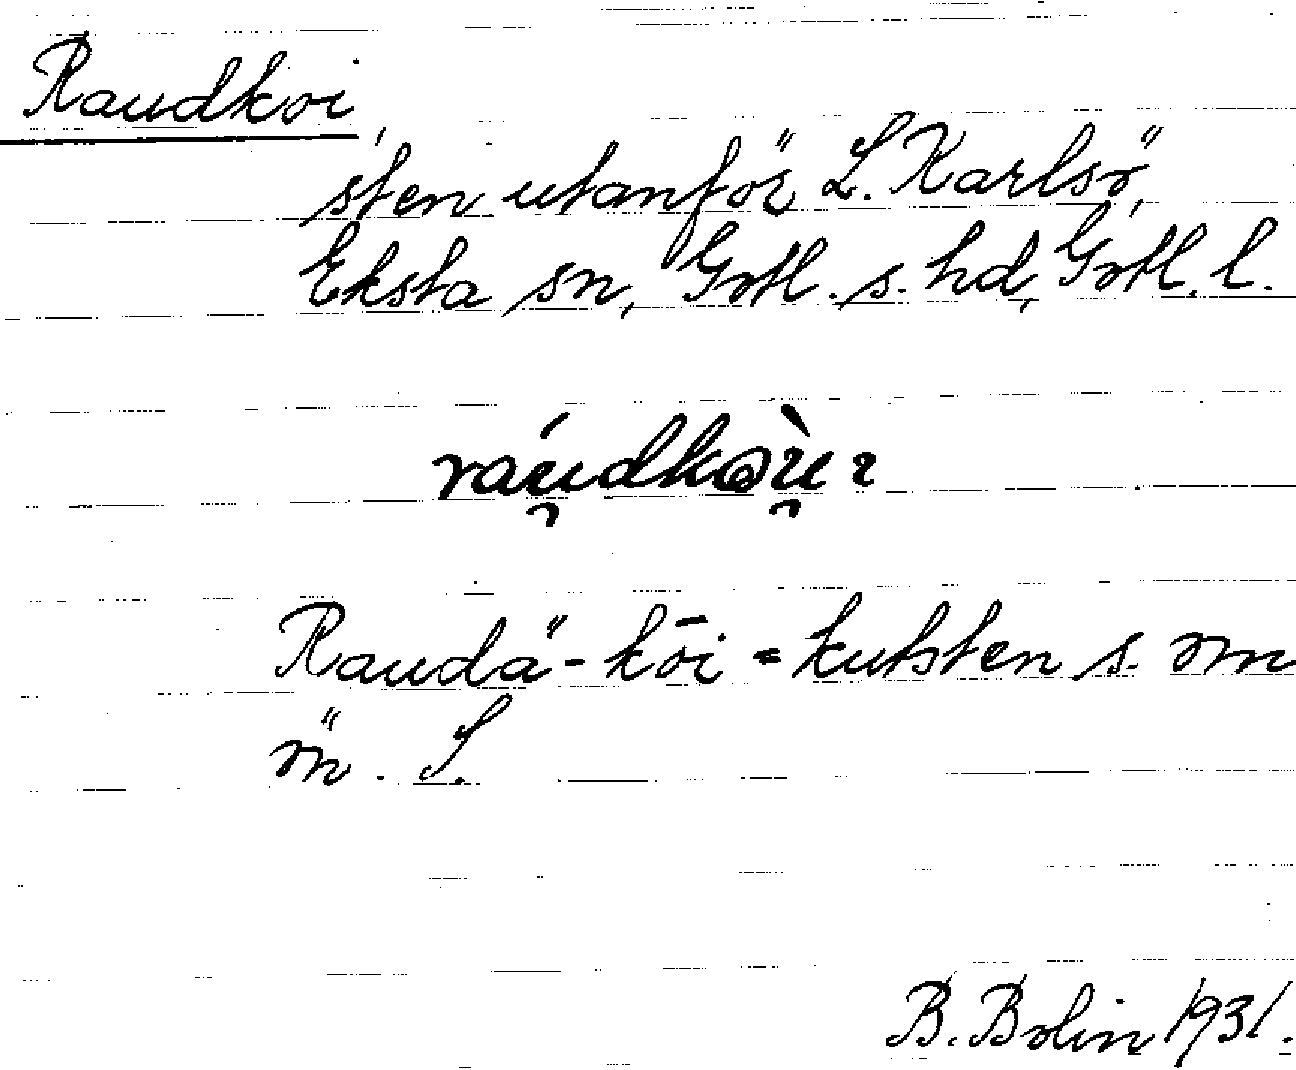 Raudkoi,
sten utanför L. Karlsö,
Eksta sn, Gotl. s. hd, Gotl. l.
Raudä-kōi = kutsten s. om
ön. S.
B. Bolin 1931.